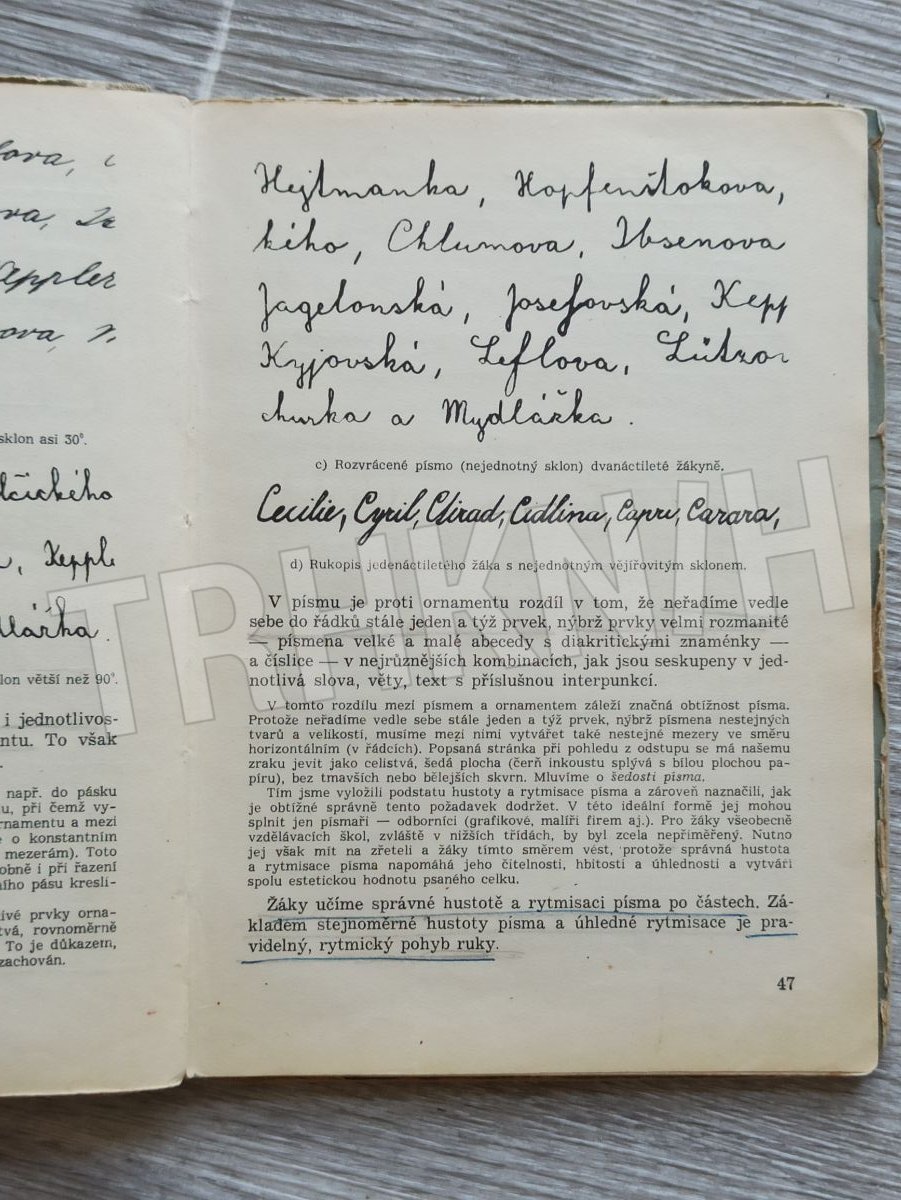 lova,
ova,
Keppler
ova,
sklon asi 30°.
lčického
Keppl
dlářka.
lon větší než 90°.
i jednotlivos-
ntu. To však
např. do pásku
u, při čemž vy-
rnamentu a mezi
o konstantním
mezerám). Toto
obně i při řazení
ního pásu kresli-
ivé prvky orna-
tvá, rovnoměrně
To je důkazem,
zachován.
Hejtmanka, Hopfenštokova,
kého, Chlumova, Ibsenova
Jagelonská, Josefovská, Kepp
Kyjovská, Leflova, Lützov
churka a Mydlářka.
c) Rozvrácené písmo (nejednotný sklon) dvanáctileté žákyně.
Cecilie, Cyril, Ctirad, Cidlina, Capri, Carara,
d) Rukopis jedenáctiletého žáka s nejednotným vějířovitým sklonem.
V písmu je proti ornamentu rozdíl v tom, že neřadíme vedle
sebe do řádků stále jeden a týž prvek, nýbrž prvky velmi rozmanité
— písmena velké a malé abecedy s diakritickými znaménky —
a číslice — v nejrůznějších kombinacích, jak jsou seskupeny v jed-
notlivá slova, věty, text s příslušnou interpunkcí.
V tomto rozdílu mezi písmem a ornamentem záleží značná obtížnost písma.
Protože neřadíme vedle sebe stále jeden a týž prvek, nýbrž písmena nestejných
tvarů a velikostí, musíme mezi nimi vytvářet také nestejné mezery ve směru
horizontálním (v řádcích). Popsaná stránka při pohledu z odstupu se má našemu
zraku jevit jako celistvá, šedá plocha (čerň inkoustu splývá s bílou plochou pa-
píru), bez tmavších nebo bělejších skvrn. Mluvíme o šedosti písma.
Tím jsme vyložili podstatu hustoty a rytmisace písma a zároveň naznačili, jak
je obtížné správně tento požadavek dodržet. V této ideální formě jej mohou
splnit jen písmaři — odborníci (grafikové, malíři firem aj.). Pro žáky všeobecně
vzdělávacích škol, zvláště v nižších třídách, by byl zcela nepřiměřený. Nutno
jej však mít na zřeteli a žáky tímto směrem vést, protože správná hustota
a rytmisace písma napomáhá jeho čitelnosti, hbitosti a úhlednosti a vytváří
spolu estetickou hodnotu psaného celku.
Žáky učíme správné hustotě a rytmisaci písma po částech. Zá-
kladem stejnoměrné hustoty písma a úhledné rytmisace je pra-
videlný, rytmický pohyb ruky.
47
TRHKNIH